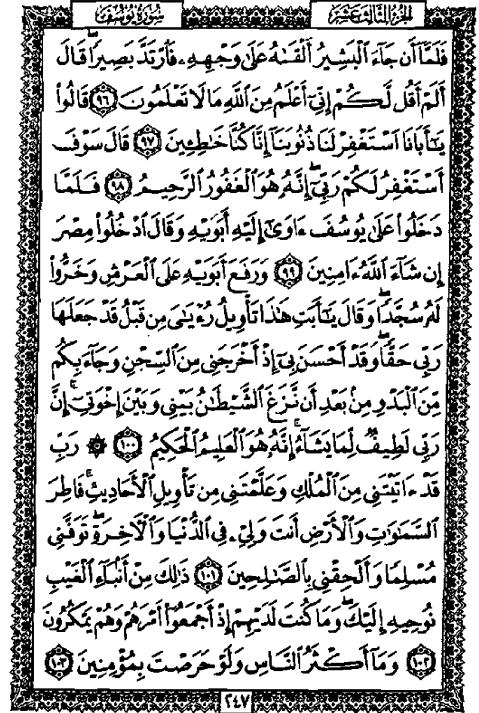 الجزء الثالث عشر
سورة يوسف
فَلَمَّا أَن جَاءَ ٱلْبَشِيرُ أَلْقَىٰهُ عَلَىٰ وَجْهِهِۦ فَٱرْتَدَّ بَصِيرًاۖ قَالَ
أَلَمْ أَقُل لَّكُمْ إِنِّىٓ أَعْلَمُ مِنَ ٱللَّهِ مَا لَا تَعْلَمُونَ ٩٦ قَالُوا۟
يَٰٓأَبَانَا ٱسْتَغْفِرْ لَنَا ذُنُوبَنَآ إِنَّا كُنَّا خَٰطِـِٔينَ ٩٧ قَالَ سَوْفَ
أَسْتَغْفِرُ لَكُمْ رَبِّىٓۖ إِنَّهُۥ هُوَ ٱلْغَفُورُ ٱلرَّحِيمُ ٩٨ فَلَمَّا
دَخَلُوا۟ عَلَىٰ يُوسُفَ ءَاوَىٰٓ إِلَيْهِ أَبَوَيْهِ وَقَالَ ٱدْخُلُوا۟ مِصْرَ
إِن شَآءَ ٱللَّهُ ءَامِنِينَ ٩٩ وَرَفَعَ أَبَوَيْهِ عَلَى ٱلْعَرْشِ وَخَرُّوا۟
لَهُۥ سُجَّدًاۖ وَقَالَ يَٰٓأَبَتِ هَٰذَا تَأْوِيلُ رُءْيَٰىَ مِن قَبْلُ قَدْ جَعَلَهَا
رَبِّى حَقًّاۖ وَقَدْ أَحْسَنَ بِىٓ إِذْ أَخْرَجَنِى مِنَ ٱلسِّجْنِ وَجَآءَ بِكُم
مِّنَ ٱلْبَدْوِ مِنۢ بَعْدِ أَن نَّزَغَ ٱلشَّيْطَٰنُ بَيْنِى وَبَيْنَ إِخْوَتِىٓۚ إِنَّ
رَبِّى لَطِيفٌ لِّمَا يَشَآءُۚ إِنَّهُۥ هُوَ ٱلْعَلِيمُ ٱلْحَكِيمُ ١٠٠ ۞ رَبِّ
قَدْ ءَاتَيْتَنِى مِنَ ٱلْمُلْكِ وَعَلَّمْتَنِى مِن تَأْوِيلِ ٱلْأَحَادِيثِۚ فَاطِرَ
ٱلسَّمَٰوَٰتِ وَٱلْأَرْضِ أَنتَ وَلِىِّۦ فِى ٱلدُّنْيَا وَٱلْءَاخِرَةِۖ تَوَفَّنِى
مُسْلِمًا وَأَلْحِقْنِى بِٱلصَّٰلِحِينَ ١٠١ ذَٰلِكَ مِنْ أَنۢبَآءِ ٱلْغَيْبِ
نُوحِيهِ إِلَيْكَۖ وَمَا كُنتَ لَدَيْهِمْ إِذْ أَجْمَعُوٓا۟ أَمْرَهُمْ وَهُمْ يَمْكُرُونَ
١٠٢ وَمَآ أَكْثَرُ ٱلنَّاسِ وَلَوْ حَرَصْتَ بِمُؤْمِنِينَ ١٠٣
٢٤٧